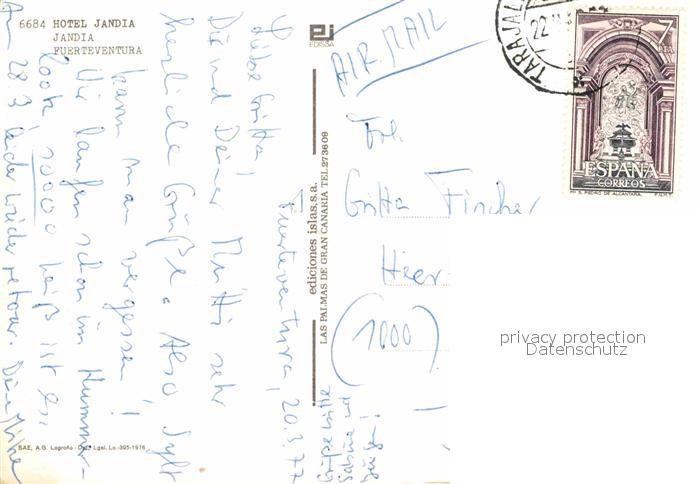 6684 HOTEL JANDIA
JANDIA
FUERTEVENTURA
EDISSA
AIR MAIL
TARAJAL
22
7
PTA
ESPAÑA
CORREOS
Mº S. PEDRO DE ALCANTARA. F.N.M.T.
Fuerteventura, 20.3.77
Liebe Gitta!
Dir und Deiner Mutti sehr
herzliche Grüße. Also Sylt
kann man vergessen!
Wir laufen schon im Hummer-
look heiß ist es,
Am 28.3 leider wieder retour. Deine
Grüße bitte
Sabine und
ediciones islas,s.a.
LAS PALMAS DE GRAN CANARIA TEL.273609
Frl.
Gitta Fischer
Hier
(1000)
SAE, A.G. Logroño - Dep. Lgal. Lo.-395-1976
privacy protection
Datenschutz